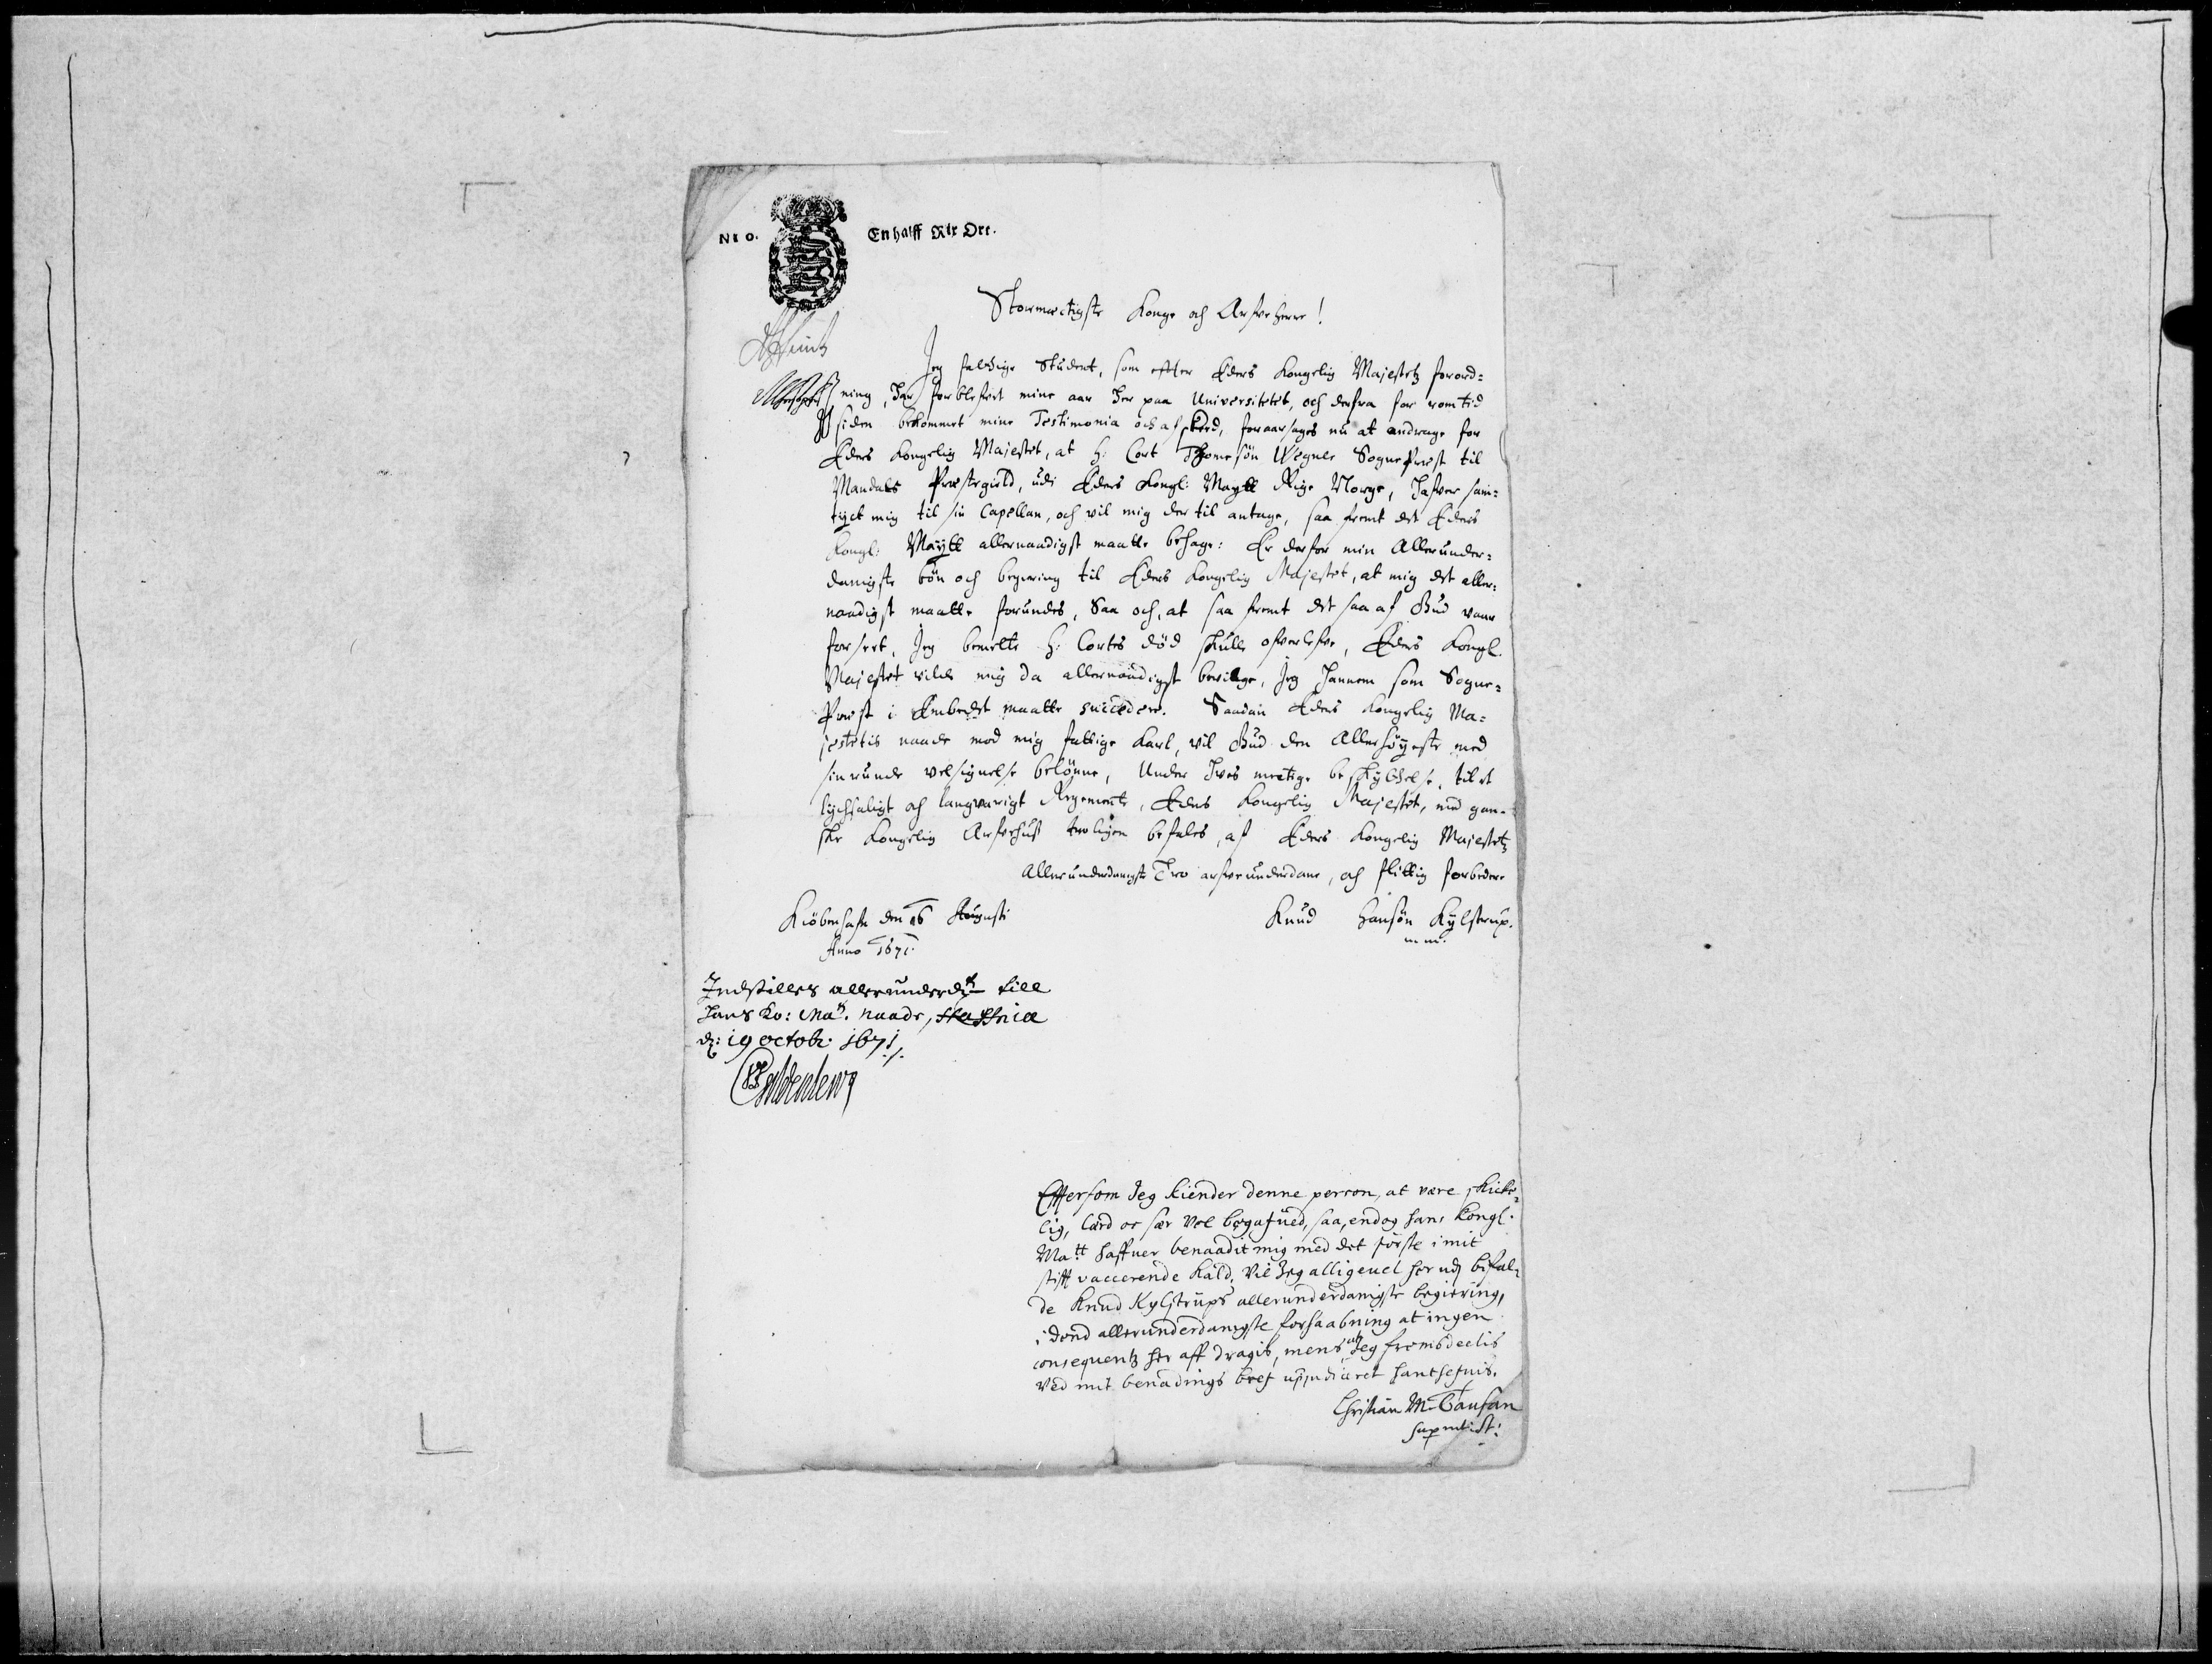 N10. En halff Rix Ort.
Stormectigste Konge och Arfve Herre!
Jeg fattige Student, som efter Eders Kongelig Majestetz forord=
ning, har forblefvet mine aar her paa Universitetet, och derfra for rom tid
siden bekommet mine Testimonia och afskeed, foraarsages nu at andrage for
Eders Kongelig Majestet, at H: Cort Thomesøn Wegner Sognepræst til
Mandals Præstegield, udi Eders Kongl: Maytt Rige Norge, hafver sam=
tyct mig til sin Capellan, och vil mig der til antage, saa fremt det Eders
Kongl: Maytt allernaadigst maatte behage: Er derfor min Allerunder=
danigste bøn och begiering til Eders Kongelig Majestet, at mig det aller=
naadigst maatte forundes, Saa och, at saa fremt det saa af Gud vaar
forseet, Jeg bemelte H: Cortes død skulle ofverlefve, Eders Kongl.
Majestet vilde mig da allernaadigst bevilge, Jeg hannem som Sogne=
Præst i Embedet maatte succedere. Saadan Eders Kongelig Ma=
jestetis naade mod mig fattige Karl, vil Gud den Allerhøyeste med
sin runde velsignelse belønne, Under hves mectige beskyttelse, til et
lychsaligt och langvarigt Regemente, Eders Kongelig Majestet, med gan=
ske Kongelig Arfvehus troligen befales, af Eders Kongelig Majestetz
Allerunderdanigste Tro arfve underdane, och flittig forbedere
Kiøbenhafn den 16 Augusti
Anno 1671.
Knud Hansøn Kylstrup.
mm.
Indstilles allerunderdst till
Hans Ko: Mats. naade,
d: 19 octobr. 1671.
Gyldenlewe
Effersom Jeg kiender denne person, at være skicke=
lig, lærd oc vel begafued, saa, endog hans Kongl.
Ma:tt haffuer benaadit mig med det første i mit
stifft vaccerende Kald, Vil Jeg alligeuel her udj bifal=
de Knud Kylstrups allerunderdanigste begiering,
i dend allerunderdanigste forhaabning at ingen
consequentz her aff dragis, mens at Jeg frembdeelis
ved mit benadings bref haffues.
Christian M. Taufan